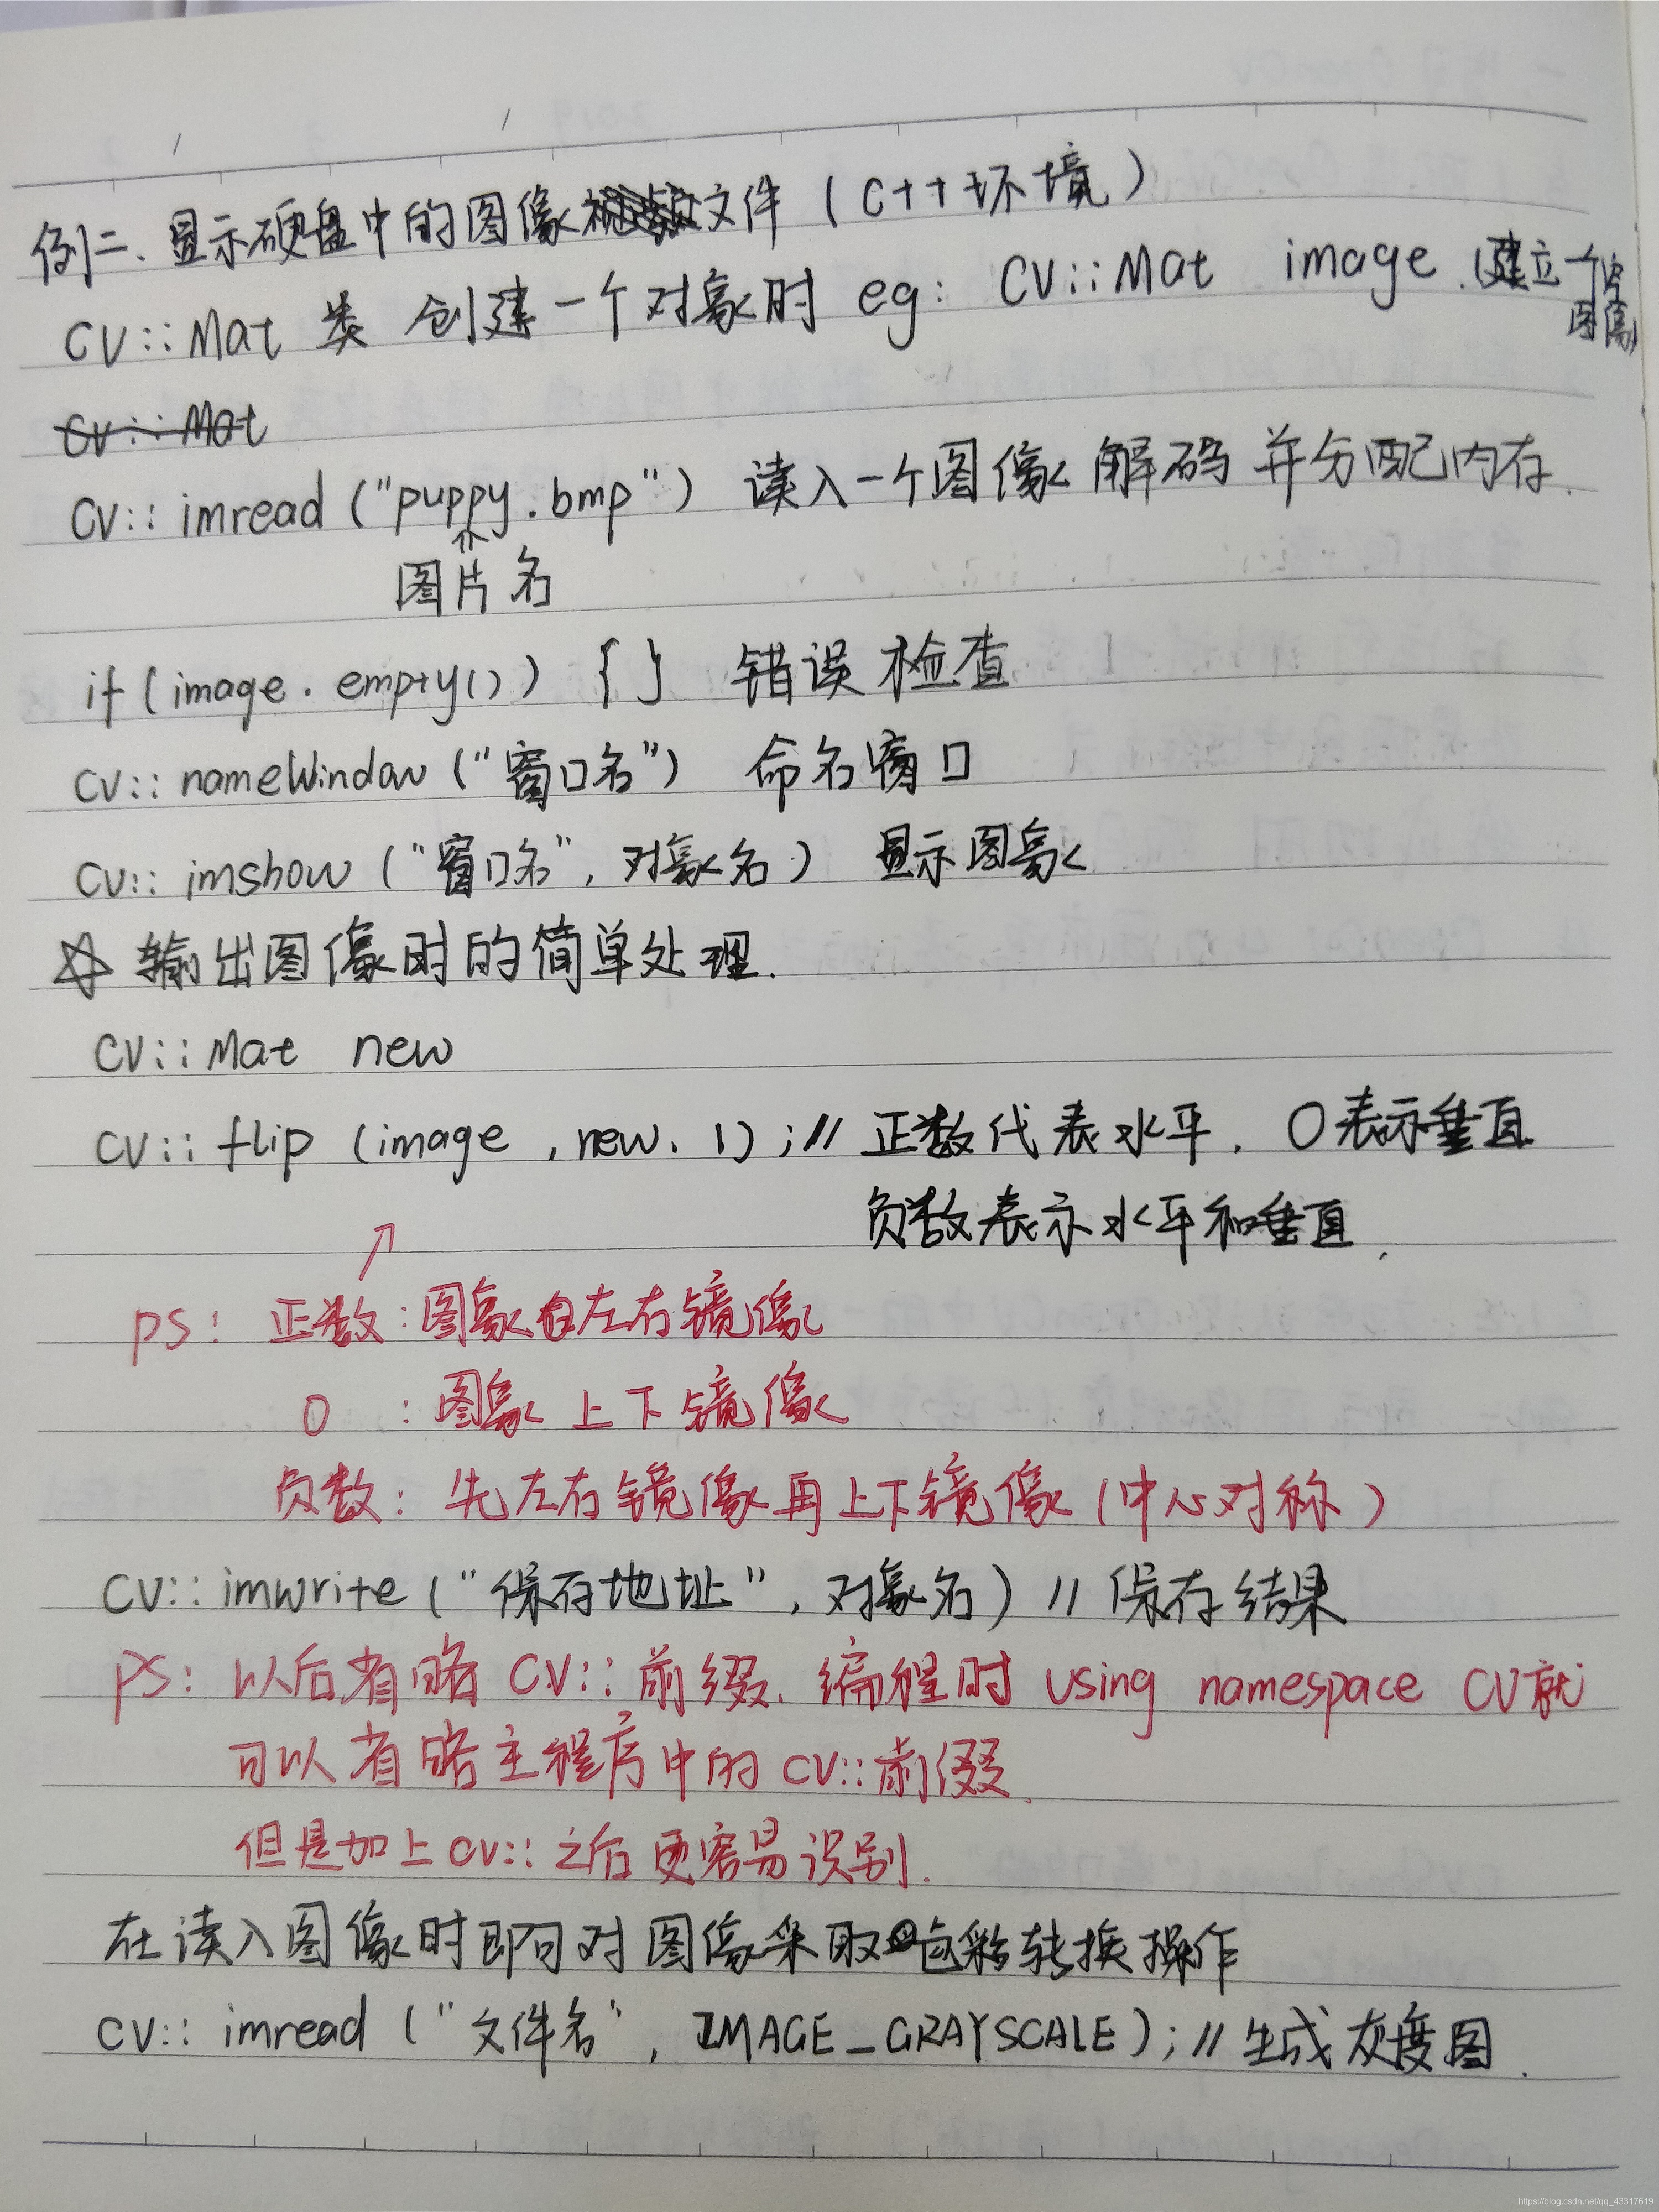 例二、显示硬盘中的图像文件（C++环境）
CV::Mat 类 创建一个对象时 eg: CV::Mat image.（建立一个空图像）
CV::Mat
CV::imread ("puppy.bmp") 读入一个图像 解码 并分配内存.
图片名
if(image.empty()) { } 错误检查
CV::nameWindow ("窗口名") 命名窗口
CV::imshow ("窗口名", 对象名) 显示图象
☆ 输出图像时的简单处理.
CV::Mat new
CV::flip (image, new, 1); // 正数代表水平, 0表示垂直
负数表示水平和垂直.
↗
ps: 正数:图象左右镜像
0 :图象 上下镜像
负数: 先左右镜像再上下镜像(中心对称)
CV::imwrite ("保存地址", 对象名) // 保存结果
PS: 以后省略 CV:: 前缀. 编程时 using namespace CV就
可以省略主程序中的CV::前缀.
但是加上CV::之后更容易识别.
在读入图像时即可对图像采取色彩转换操作
CV::imread ("文件名", IMAGE_GRAYSCALE); // 生成灰度图.
https://blog.csdn.net/qq_43317619